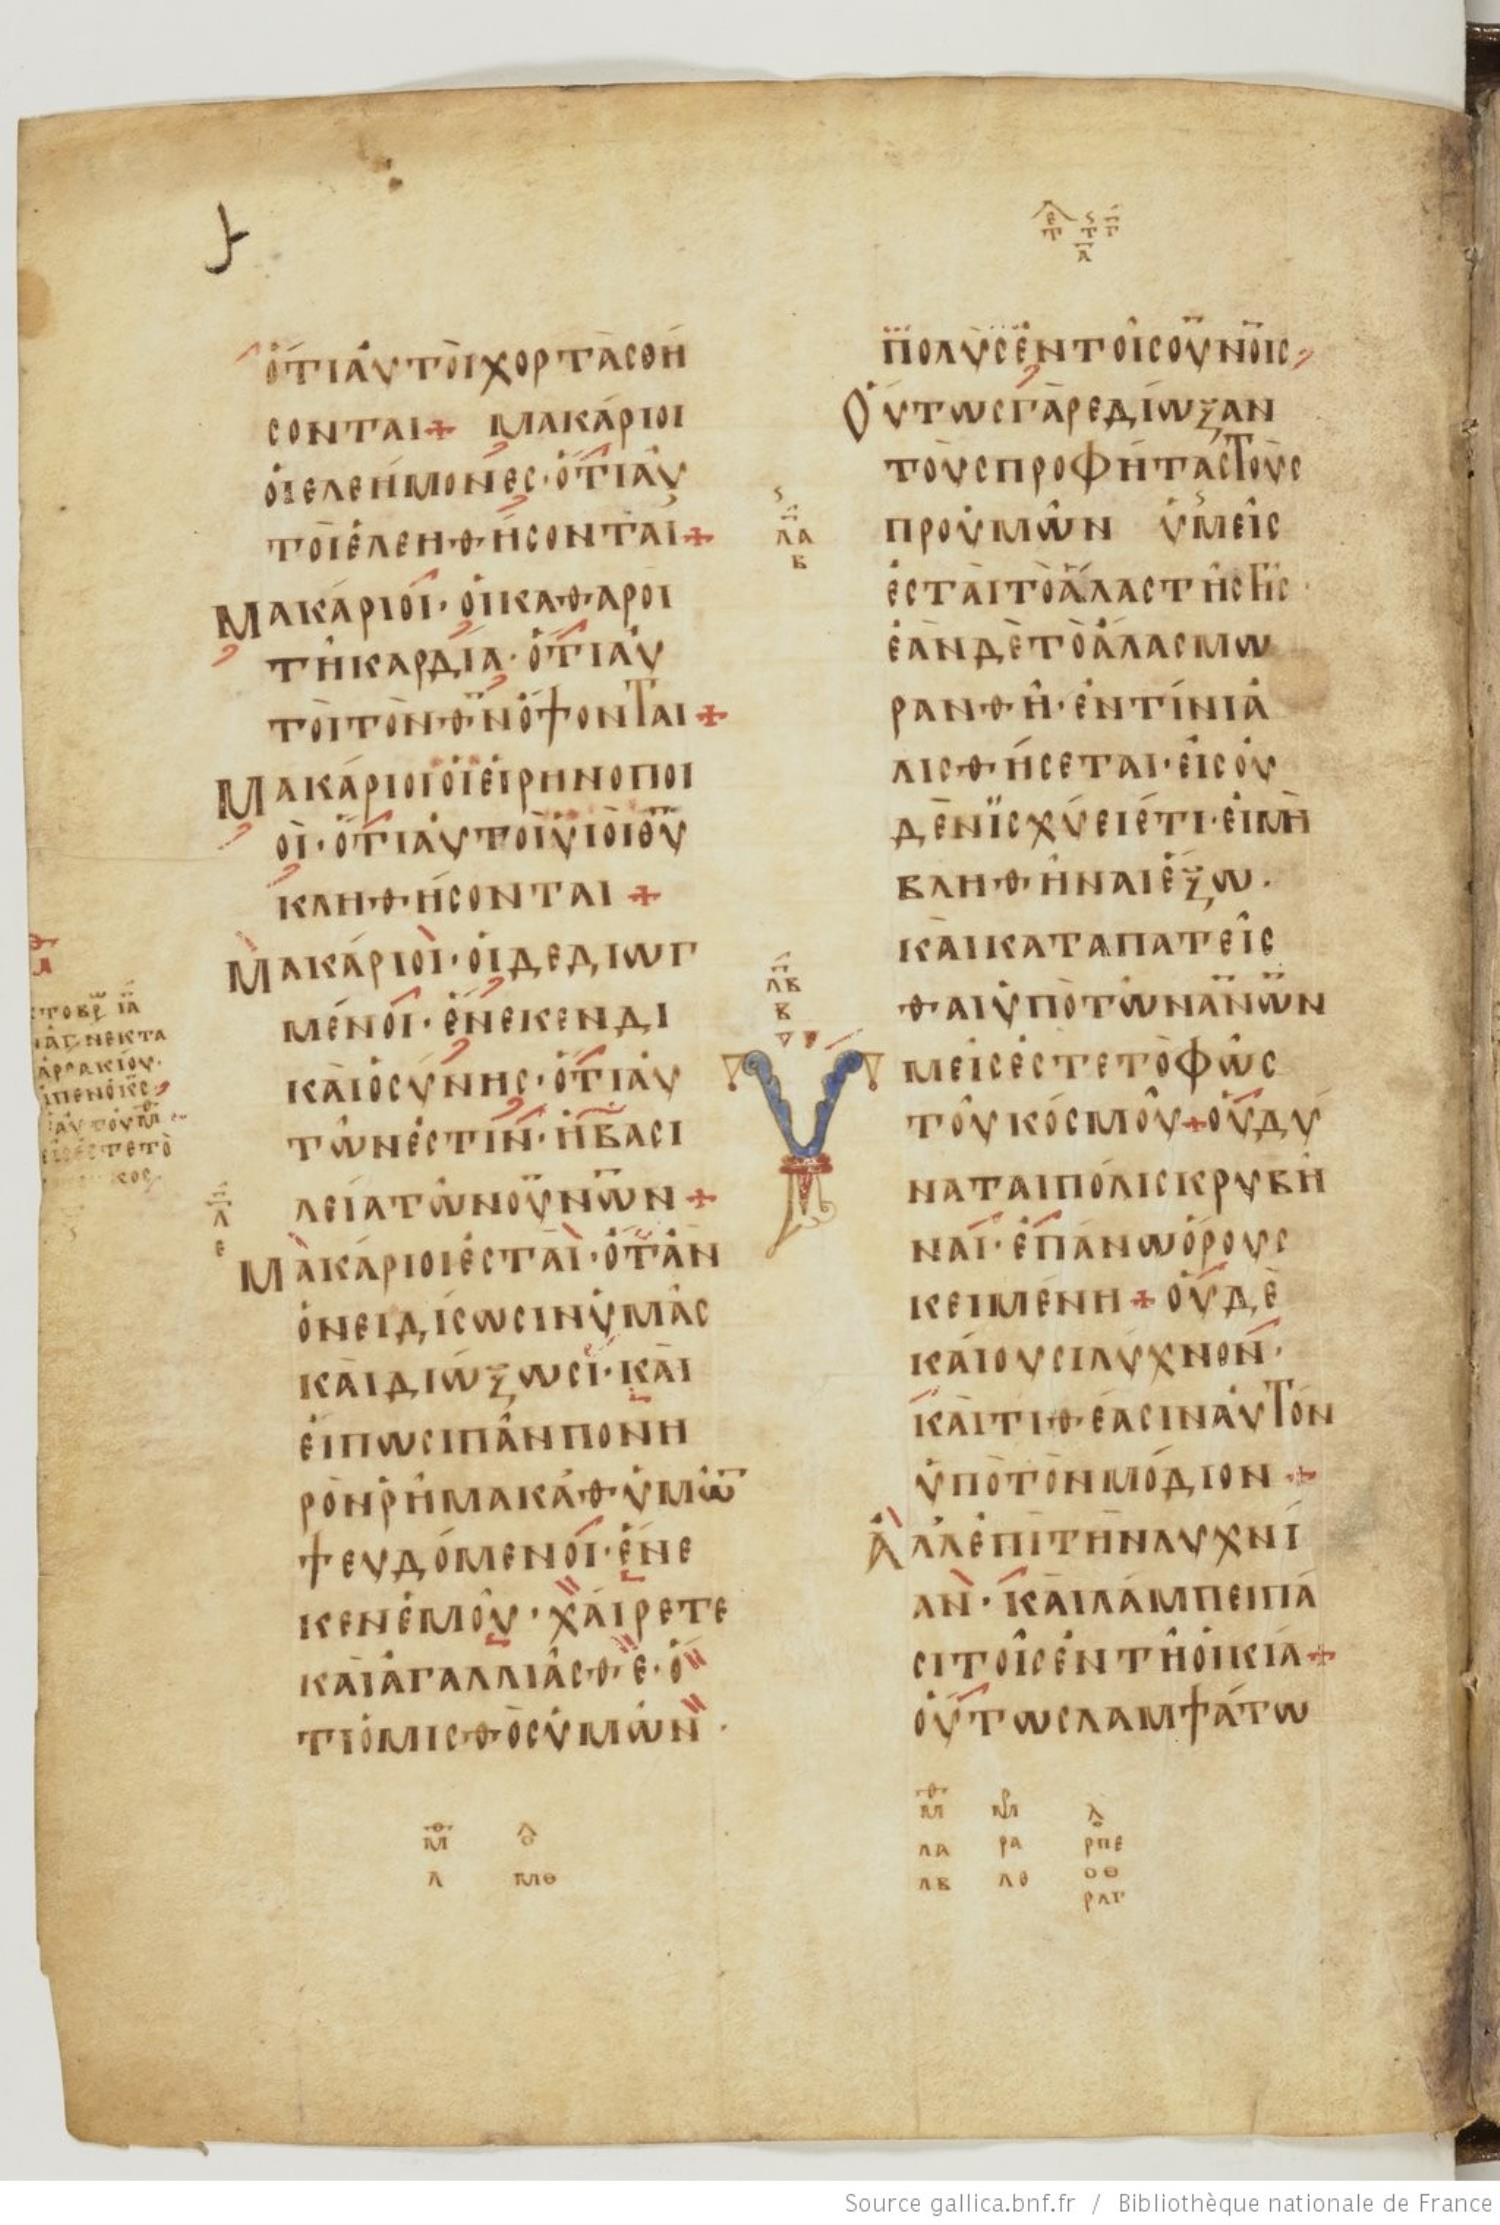 ὅτι ἀυτὸι χορτασθή
σονται + Μακάριοι
ὁι ελεήμονες · ὅτι ἀυ
τὸι ἐλεηθήσονται +
Μακάριοι · ὁι καθαρὸι
τῆ καρδία · ὅτι ἀυ
τὸι τὸν θν ὄψονται +
Μακάριοι ὁι ἐιρηνοποι
οὶ · ὅτι ἀυτοὶ υἱὸι θυ
κληθήσονται +
Μακάριοι · ὁι δεδιωγ
μένοι · ἕνεκεν δι
κὰιοσύνης · ὅτι ἀυ
τῶν ἐστὶν · ἡ βασι
λεία τῶν ουνων +
Μακάριοι ἐσται · ὅταν
ὀνειδίσωσιν ὑμᾶς
κὰι διώξωσι · κὰι
εἴπωσι πᾶν πονη
ρὸν ῥῆμα καθ υμῶ
ψευδόμενοι · ἕνε
κεν ἐμοῦ · χάιρετε
κὰι ἀγαλλιᾶσθε · ὅ
τι ὁ μισθὸς ὑμῶν ·
πολὺς ἐν τοῖς ουνοις
Ούτως γὰρ εδίωξαν
τοὺς προφήτας τοὺς
πρὸ ὑμῶν ὑμεῖς
ἐστὰι τὸ ἅλας τῆς γῆς ·
ἐὰν δὲ τὸ ἅλας μω
ρανθῆ · ἐν τίνι ἁ
λισθήσεται · ἐις ὀυ
δὲν ἰσχύει ἔτι · ἐι μὴ
βληθῆναι ἔξω ·
κὰι καταπατεῖς
θαι ὑπὸ τῶν ανων
Υμεῖς ἐστε τὸ φῶς
τοῦ κόσμου + ὀυ δύ
ναται πόλις κρυβῆ
ναι · ἐπάνω ὄρους
κειμένη + ὀυδὲ
κάιουσι λύχνον ·
κὰι τιθέασιν ἀυτὸν
ὑπὸ τὸν μόδιον +
Ἀλλ ἐπὶ τὴν λυχνί
αν · κὰι λάμπει πᾶ
σι τοῖς ἐν τῆ ὀικία +
ὅυτως λαμψάτω
Source gallica.bnf.fr / Bibliothèque nationale de France